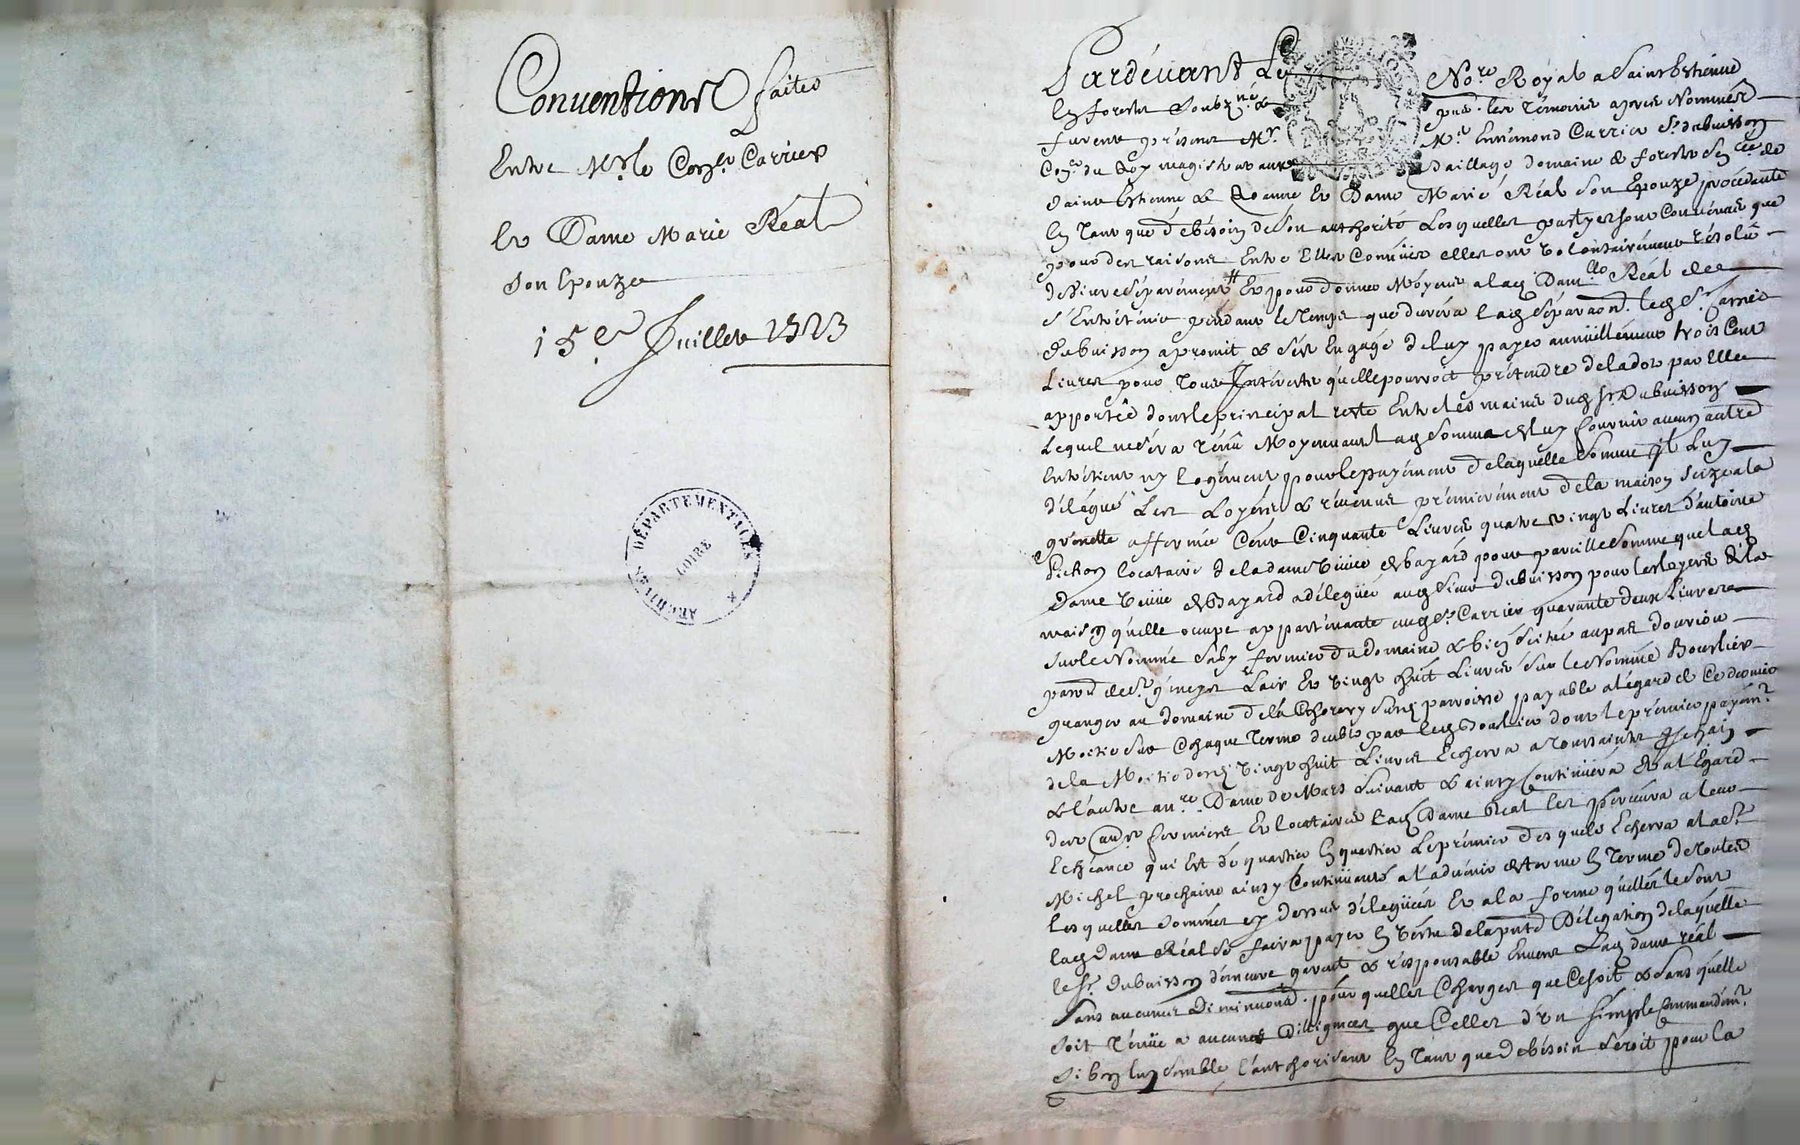 Conventions faites
Entre Mr. le Conser. Carrier
Et Dame Marie Réal
son Epouze
15e. Juillet 1723
ARCHIVES DÉPARTEMENTALES
LOIRE
Pardevant Le Nore. Royal a Saint Estienne
En forest soubzne. & pnd. les témoins apres Nommés
furent présent Mr. Me. Ennemond Carrier Sr. dubuisson
Coner. du Roy magistrat au Baillage domaine & forest
Saint Estienne & Dame Marie Réal son Epouze procédante
En tant que de bésoin de son authorité Lesquelles partyes sont Convenües que
pour des raisons Entre Elles Connües elles ont volontairément résolû
de vivre séparément Et pour donner Moyens a lad Dame Réal de
s'Entreténir pendant le temps que durera lad séparaon. led Sr. Carrier
dubuisson a promit & s'est Engagé de luy payer annuéllement trois Cent
Livres pour tous Intérests qu'elle pourroit prétendre de la dot par Elle
apportée dont le principal reste Entre les mains dud Sr. Dubuisson
Lequel ne séra ténû Moyennant lad somme de luy fournir aucun autre
Entretient ny Logément pour le payément de laquelle somme il Luy
délégue Les Loyérs & révenus prémiérément de la maison scize a la
grenette affermée Cent Cinquante Livres quatre vingt Livres d'antoine
Pichon locataire de la dame Veuve de bayard pour pareille somme que lad
Dame Veuve de Bayard a délegüée aud Sieur dubuisson pour les loyers de la
maison qu'elle ocupe appartenante aud Sr. Carrier quarante deux Livres
sur le Nommé fermier du domaine & bien scitué au
Et vingt huit Livres sur le Nommé Bourlier
granger au domaine de la payable a légard de Ce dernier
Moitié sur Chaque terme dont le prémier payémt.
de la Moitié desd vingt huit Livres Echerra a toussaints
& l'autre a nre. Dame de Mars suivant & ainsy Continüera Et al Egard
des autres fermiers Et locataires Lad Dame Réal les percevra a leur
Echéance qui Est de quartier En quartier Le prémier des quels Echerra a la St.
Michel prochaine ainsy Continüant a l'advénir de terme En terme de toutes
Lesquelles sommes cy dessus délegüées Et a la forme qu'elles le sont
lad dame Réal se faira payer En vertu de la pnte. Délégation de laquelle
le Sr. dubuisson démeure garant & résponsable Envers Lad dame réal
Sans aucune Diminuon. pour quelles Charges que Ce soit & sans qu'elle
soit ténüe a aucunes Diligences que Celles d'un simple Commandémt.
si bon luy semble l'authorisant En tant que de bésoin seroit pour la